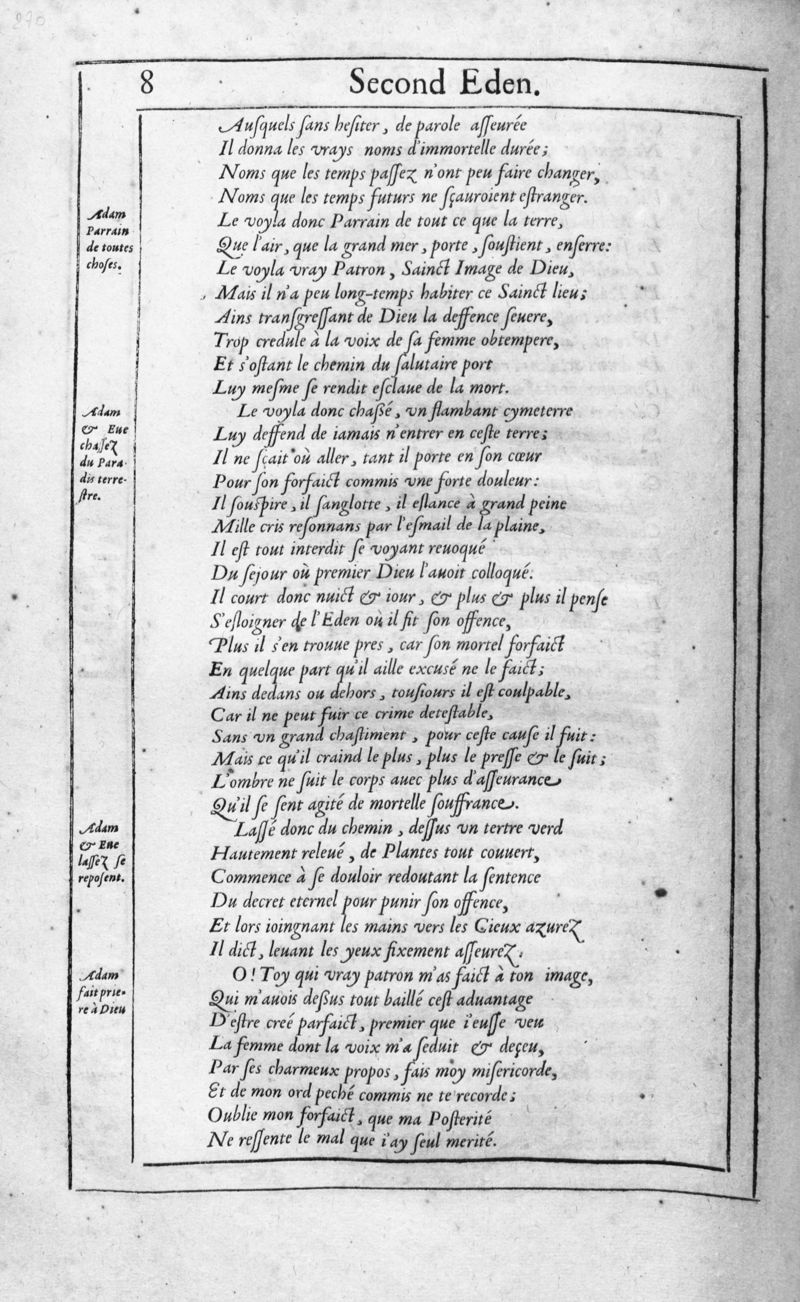 270
8
Second Eden.
Auſquels ſans heſiter, de parole aſſeurée
Il donna les vrays noms d'immortelle durée;
Noms que les temps paſſez n'ont peu faire changer,
Noms que les temps futurs ne ſçauroient eſtranger.
Adam
Parrain
de toutes
choſes.
Le voyla donc Parrain de tout ce que la terre,
Que l'air, que la grand mer, porte, ſouſtient, enſerre:
Le voyla vray Patron, Sainct Image de Dieu,
Mais il n'a peu long-temps habiter ce Sainct lieu;
Ains tranſgreſſant de Dieu la deffence ſeuere,
Trop credule à la voix de ſa femme obtempere,
Et s'oſtant le chemin du ſalutaire port
Luy meſme ſe rendit eſclaue de la mort.
Adam
& Eue
chaſſez
du Para-
dis terre-
ſtre.
Le voyla donc chaßé, vn flambant cymeterre
Luy deffend de iamais n'entrer en ceſte terre;
Il ne ſçait où aller, tant il porte en ſon cœur
Pour ſon forfaict commis vne forte douleur:
Il ſouſpire, il ſanglotte, il eſlance à grand peine
Mille cris reſonnans par l'eſmail de la plaine,
Il eſt tout interdit ſe voyant reuoqué
Du ſejour où premier Dieu l'auoit colloqué.
Il court donc nuict & iour, & plus & plus il penſe
S'eſloigner de l'Eden où il fit ſon offence,
Plus il s'en trouue pres, car ſon mortel forfaict
En quelque part qu'il aille excusé ne le faict;
Ains dedans ou dehors, touſiours il eſt coulpable,
Car il ne peut fuir ce crime deteſtable,
Sans vn grand chaſtiment, pour ceſte cauſe il fuit:
Mais ce qu'il craind le plus, plus le preſſe & le ſuit;
L'ombre ne ſuit le corps auec plus d'aſſeurance
Qu'il ſe ſent agité de mortelle ſouffrance.
Adam
& Eue
laſſez ſe
repoſent.
Laſſé donc du chemin, deſſus vn tertre verd
Hautement releué, de Plantes tout couuert,
Commence à ſe douloir redoutant la ſentence
Du decret eternel pour punir ſon offence,
Et lors ioingnant les mains vers les Cieux azurez
Il dict, leuant les yeux fixement aſſeurez.
Adam
fait prie-
re à Dieu
O! Toy qui vray patron m'as faict à ton image,
Qui m'auois deßus tout baillé ceſt aduantage
D'eſtre creé parfaict, premier que i'euſſe veu
La femme dont la voix m'a ſeduit & deçeu,
Par ſes charmeux propos, fais moy miſericorde,
Et de mon ord peché commis ne te recorde;
Oublie mon forfaict, que ma Poſterité
Ne reſſente le mal que i'ay ſeul merité.